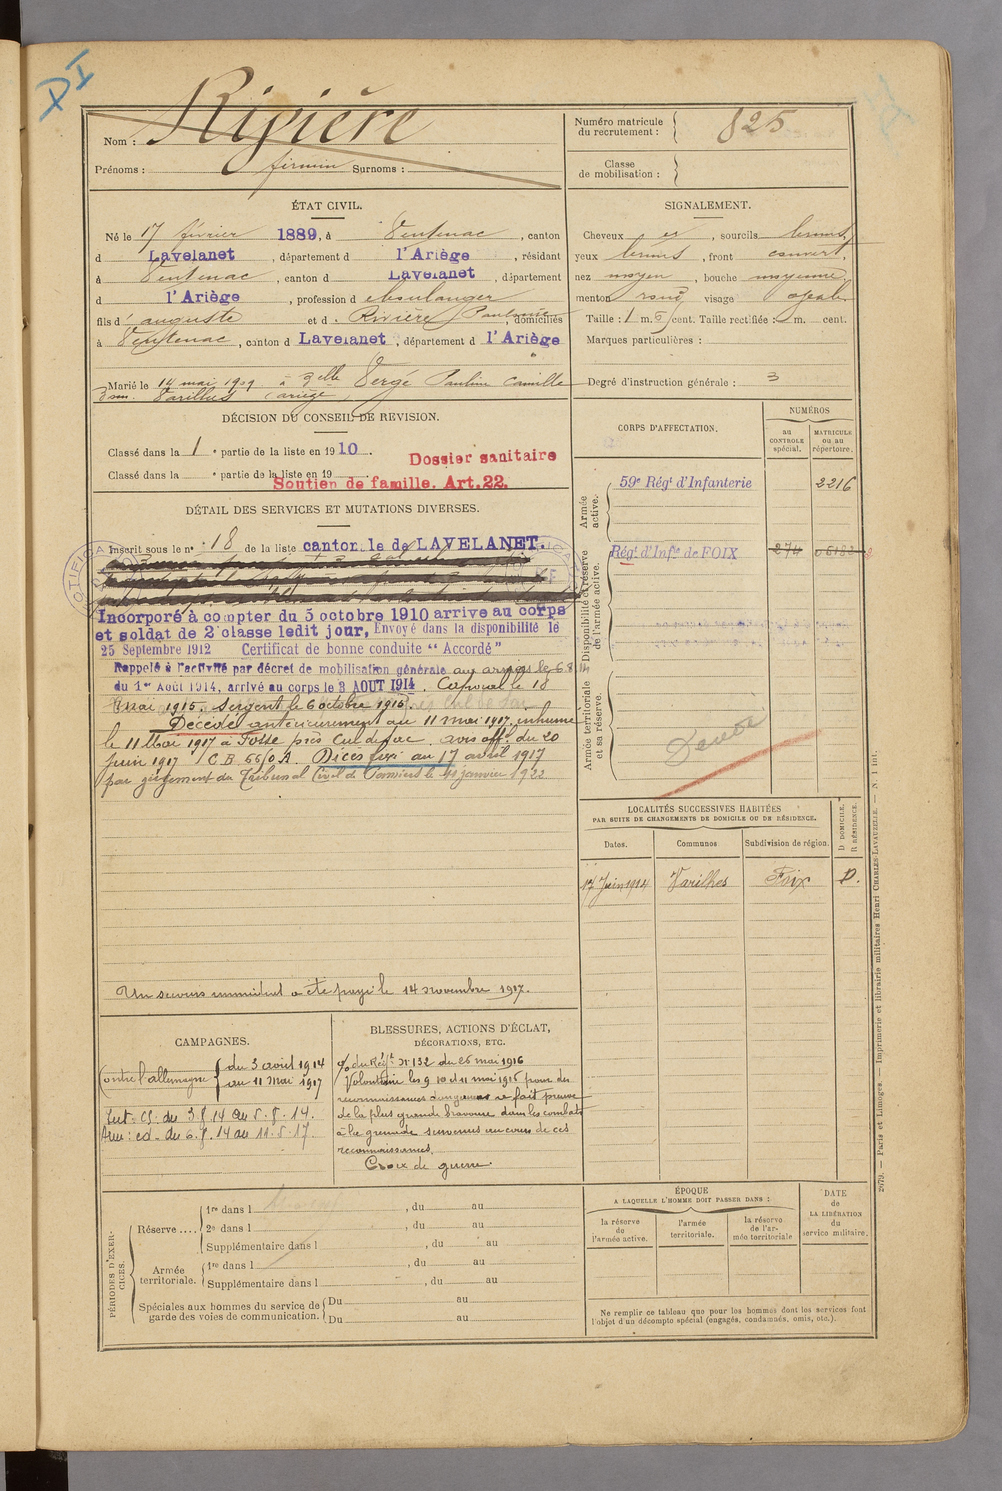 DI
Nom : Rivière
Prénoms : firmin Surnoms :
Numéro matricule du recrutement : 825
Classe de mobilisation :
ÉTAT CIVIL.
Né le 17 février 1889, à Ventenac, canton
d Lavelanet, département d l'Ariège, résidant
à Ventenac, canton d Lavelanet, département
d l'Ariège, profession d boulanger
fils d' auguste et d. Rivière Pauline, domiciliés
à Ventenac, canton d Lavelanet, département d l'Ariège
Marié le 14 mai 1909 à Delle Vergé Pauline Camille
Dom. Varilhes (ariège)
SIGNALEMENT.
Cheveux es, sourcils bruns,
yeux bruns, front couvert,
nez moyen, bouche moyenne,
menton rond visage ovale
Taille : 1 m. cent. Taille rectifiée : m. cent.
Marques particulières :
Degré d'instruction générale : 3
DÉCISION DU CONSEIL DE REVISION.
Classé dans la 1e partie de la liste en 1910.
Classé dans la e partie de la liste en 19
Dossier sanitaire
Soutien de famille. Art.22.
DÉTAIL DES SERVICES ET MUTATIONS DIVERSES.
Inscrit sous le n° 18 de la liste cantonale de LAVELANET.
Incorporé à compter du 5 octobre 1910 arrive au corps
et soldat de 2e classe ledit jour, Envoyé dans la disponibilité le
25 Septembre 1912 Certificat de bonne conduite "Accordé"
Rappelé à l'activité par décret de mobilisation générale aux armées le 6.8.14
du 1er Août 1914, arrivé au corps le 3 AOUT 1914. Caporal le 18
mai 1915. Sergent le 6 octobre 1915.
Décédé antérieurement au 11 mai 1917, inhumé
le 11 Mai 1917 à Fosse près Cul de sac avis offl. du 20
juin 1917 C.B. 6610.A. Décès fixé au 17 avril 1917
par jugement du Tribunal Civil de Pamiers le janvier 1922
Un secours immédiat a été payé le 14 novembre 1917.
CORPS D'AFFECTATION.
NUMÉROS
au CONTROLE spécial.
MATRICULE ou au répertoire.
Armée active.
59e Régt d'Infanterie 2216
Disponibilité et réserve de l'armée active.
Régt d'Infie de FOIX 274
Armée territoriale et sa réserve.
Décédé
LOCALITÉS SUCCESSIVES HABITÉES
PAR SUITE DE CHANGEMENTS DE DOMICILE OU DE RÉSIDENCE.
D DOMICILE. R RÉSIDENCE.
Dates. Communes Subdivision de région.
17 Juin 1914 Varilhes Foix D.
CAMPAGNES.
Contre l'allemagne du 3 août 1914
au 11 mai 1917
Int: CS. du 3.8.14 au 5.8.14.
Arm: cd. du 6.8.14 au 11.5.17.
BLESSURES, ACTIONS D'ÉCLAT,
DÉCORATIONS, ETC.
O/ du Régt N° 132 du 26 mai 1916
Volontaire les 9 10 et 11 mai 1916 pour des
reconnaissances dangereuses a fait preuve
de la plus grande bravoure dans les combats
à la grenade survenus au cours de ces
reconnaissances.
Croix de guerre.
PÉRIODES D'EXERCICES.
Réserve .... 1re dans l , du au
2e dans l , du au
Supplémentaire dans l , du au
Armée territoriale. 1re dans l , du au
Supplémentaire dans l , du au
Spéciales aux hommes du service de garde des voies de communication. Du au
Du au
ÉPOQUE
A LAQUELLE L'HOMME DOIT PASSER DANS :
la réserve de l'armée active.
l'armée territoriale.
la réserve de l'armée territoriale
DATE de LA LIBÉRATION du service militaire.
Ne remplir ce tableau que pour les hommes dont les services font
l'objet d'un décompte spécial (engagés, condamnés, omis, etc.).
2679. — Paris et Limoges. — Imprimerie et librairie militaires Henri CHARLES-LAVAUZELLE. — N. 1 int.